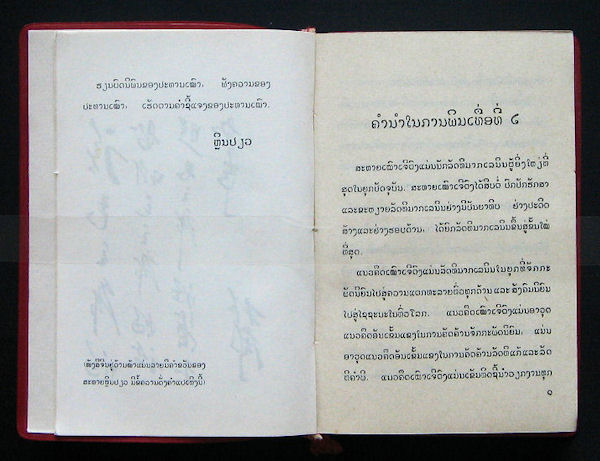 ຮຽນບົດນິພົນຂອງປະທານເໝົາ, ຟັງຄວາມຂອງ
ປະທານເໝົາ, ເຮັດຕາມຄຳຊີ້ແຈງຂອງປະທານເໝົາ.
ຫຼິນປຽວ
(ໜັງສືຈີນຢູ່ດ້ານໜ້າແມ່ນລາຍມືຄຳຂວັນຂອງ
ສະຫາຍຫຼິນປຽວ ມີຂໍ້ຄວາມດັ່ງຄຳແປເທິງນີ້)
ຄຳນຳໃນການພິມເທື່ອທີ ໒
ສະຫາຍເໝົາເຈີຕົງແມ່ນນັກລັດທິມາກເລນິນຜູ້ຍິ່ງໃຫຍ່ທີ່
ສຸດໃນຍຸກປັດຈຸບັນ. ສະຫາຍເໝົາເຈີຕົງໄດ້ສືບຕໍ່ ປົກປັກຮັກສາ
ແລະຂະຫຍາຍລັດທິມາກເລນິນຢ່າງມີບັນຍາທິບ ຢ່າງປະດິດ
ສ້າງແລະຢ່າງຮອບດ້ານ, ໄດ້ຍົກລັດທິມາກເລນິນຂຶ້ນສູ່ຂັ້ນໃໝ່
ທີ່ສຸດ.
ແນວຄິດເໝົາເຈີຕົງແມ່ນລັດທິມາກເລນິນໃນຍຸກທີ່ຈັກກະ
ພັດນິຍົມໄປສູ່ຄວາມແຕກຫະລາຍທົ່ວທຸກດ້ານ ແລະ ສັງຄົມນິຍົມ
ໄປສູ່ໄຊຊະນະໃນທົ່ວໂລກ. ແນວຄິດເໝົາເຈີຕົງແມ່ນອາວຸດ
ແນວຄິດອັນເຂັ້ມແຂງໃນການຄັດຄ້ານຈັກກະພັດນິຍົມ, ແມ່ນ
ອາວຸດແນວຄິດອັນເຂັ້ມແຂງໃນການຄັດຄ້ານລັດທິແກ້ແລະລັດ
ທິຄຳພີ. ແນວຄິດເໝົາເຈີຕົງແມ່ນເຂັມທິດຊີ້ນຳວຽກງານທຸກ
໑